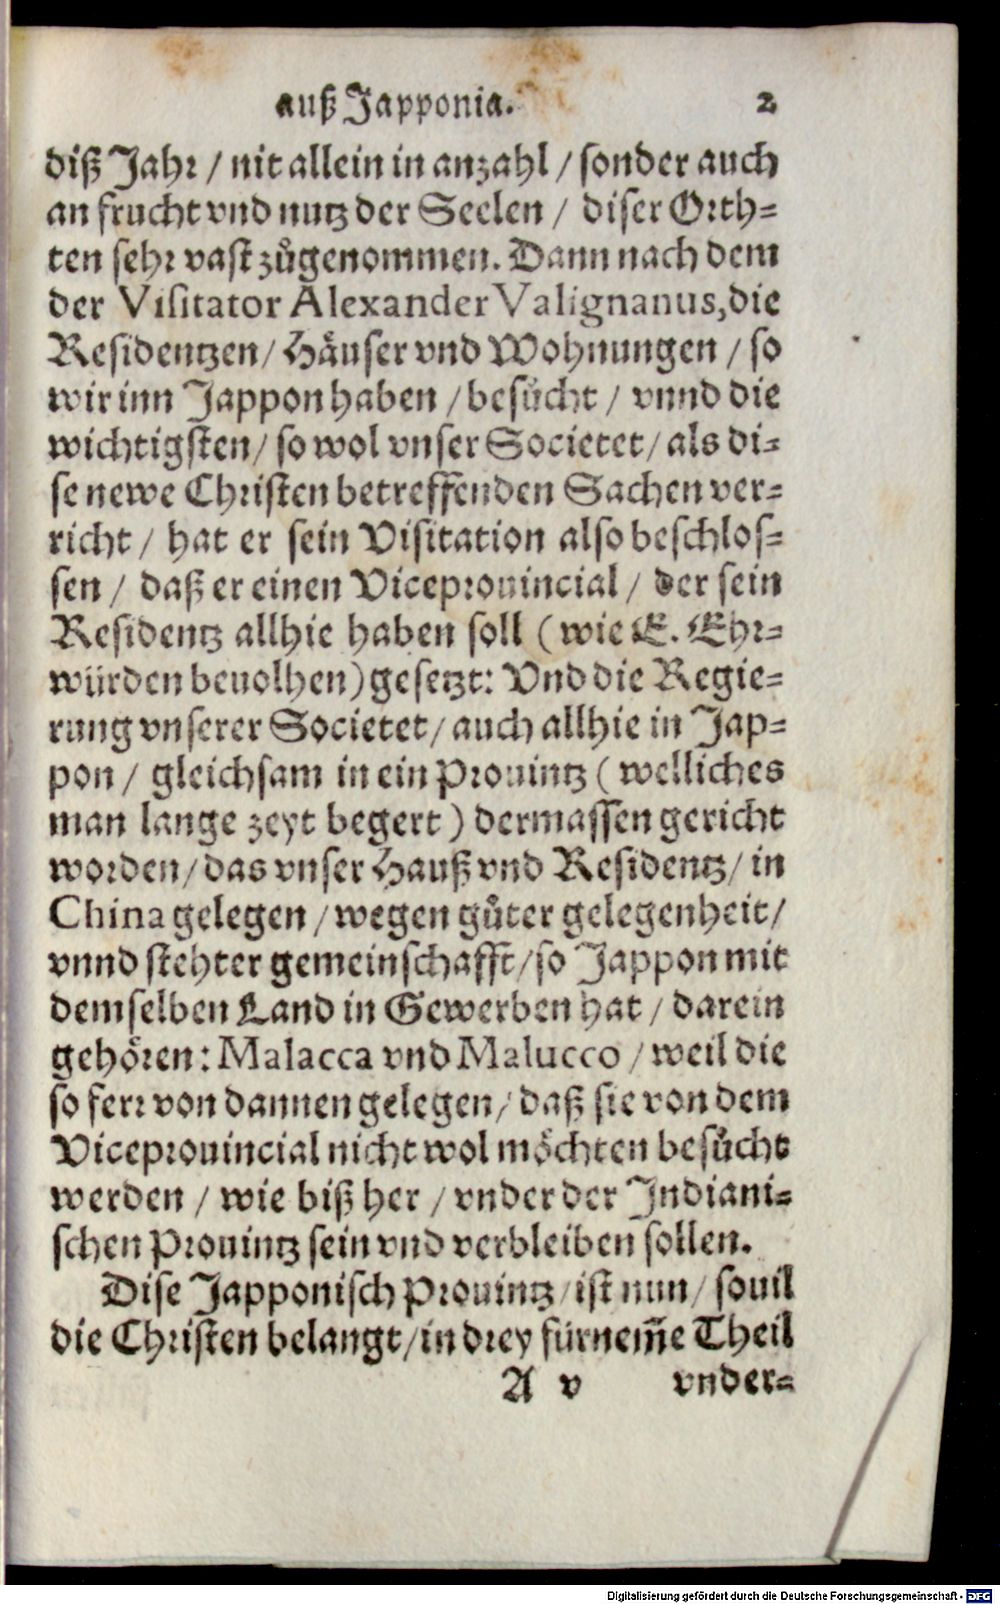 auß Japponia. 2
diß Jahr / nit allein in anzahl / sonder auch
an frucht vnd nutz der Seelen / diser Orth-
ten sehr vast zůgenommen. Dann nach dem
der Visitator Alexander Valignanus, die
Residentzen / Häuser vnd Wohnungen / so
wir inn Jappon haben / besůcht / vnnd die
wichtigsten / so wol vnser Societet / als di-
se newe Christen betreffenden Sachen ver-
richt / hat er sein Visitation also beschlos-
sen / daß er einen Viceprouincial / der sein
Residentz allhie haben soll ( wie E. Ehr-
würden beuolhen) gesetzt: Vnd die Regie-
rung vnserer Societet / auch allhie in Jap-
pon / gleichsam in ein Prouintz ( welliches
man lange zeyt begert ) dermassen gericht
worden / das vnser Hauß vnd Residentz / in
China gelegen / wegen gůter gelegenheit /
vnnd stehter gemeinschafft / so Jappon mit
demselben Land in Gewerben hat / darein
gehören: Malacca vnd Malucco / weil die
so ferr von dannen gelegen / daß sie von dem
Viceprouincial nicht wol möchten besůcht
werden / wie biß her / vnder der Indiani-
schen Prouintz sein vnd verbleiben sollen.
Dise Japponisch Prouintz / ist nun / souil
die Christen belangt / in drey fürnem̃e Theil
A v vnder-
Digitalisierung gefördert durch die Deutsche Forschungsgemeinschaft - DFG